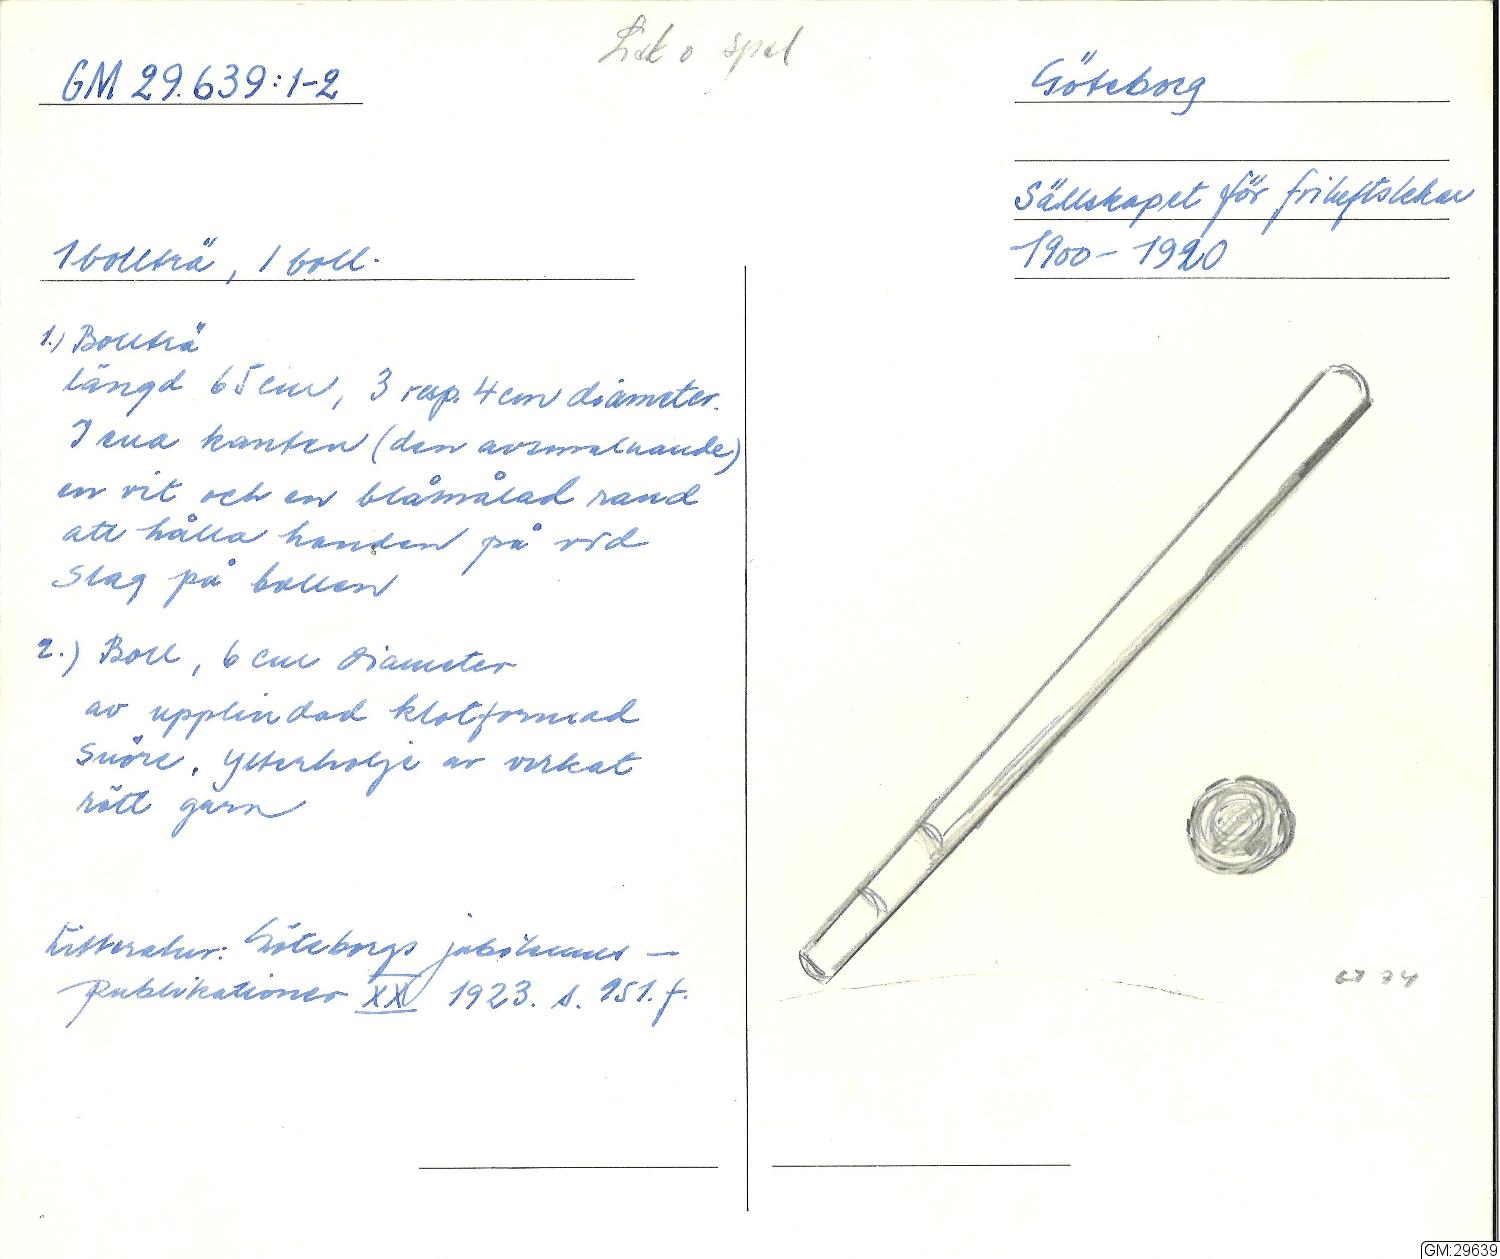 Lek o spel
GM 29.639:1-2
Göteborg
Sällskapet för friluftslekar
1900-1920
1 bollträ, 1 boll.
1.) Bollträ
längd 65 cm, 3 resp. 4 cm diameter.
I ena kanten (den avsmalnande)
en vit och en blåmålad rand
att hålla handen på vid
Slag på bollen
2.) Boll, 6 cm diameter
av upplindad klotformad
Snöre. Ytterhölje av virkat
rött garn
Litteratur: Göteborgs jubileums-
publikationer XX 1923. s. 151. f.
74
GM:29639